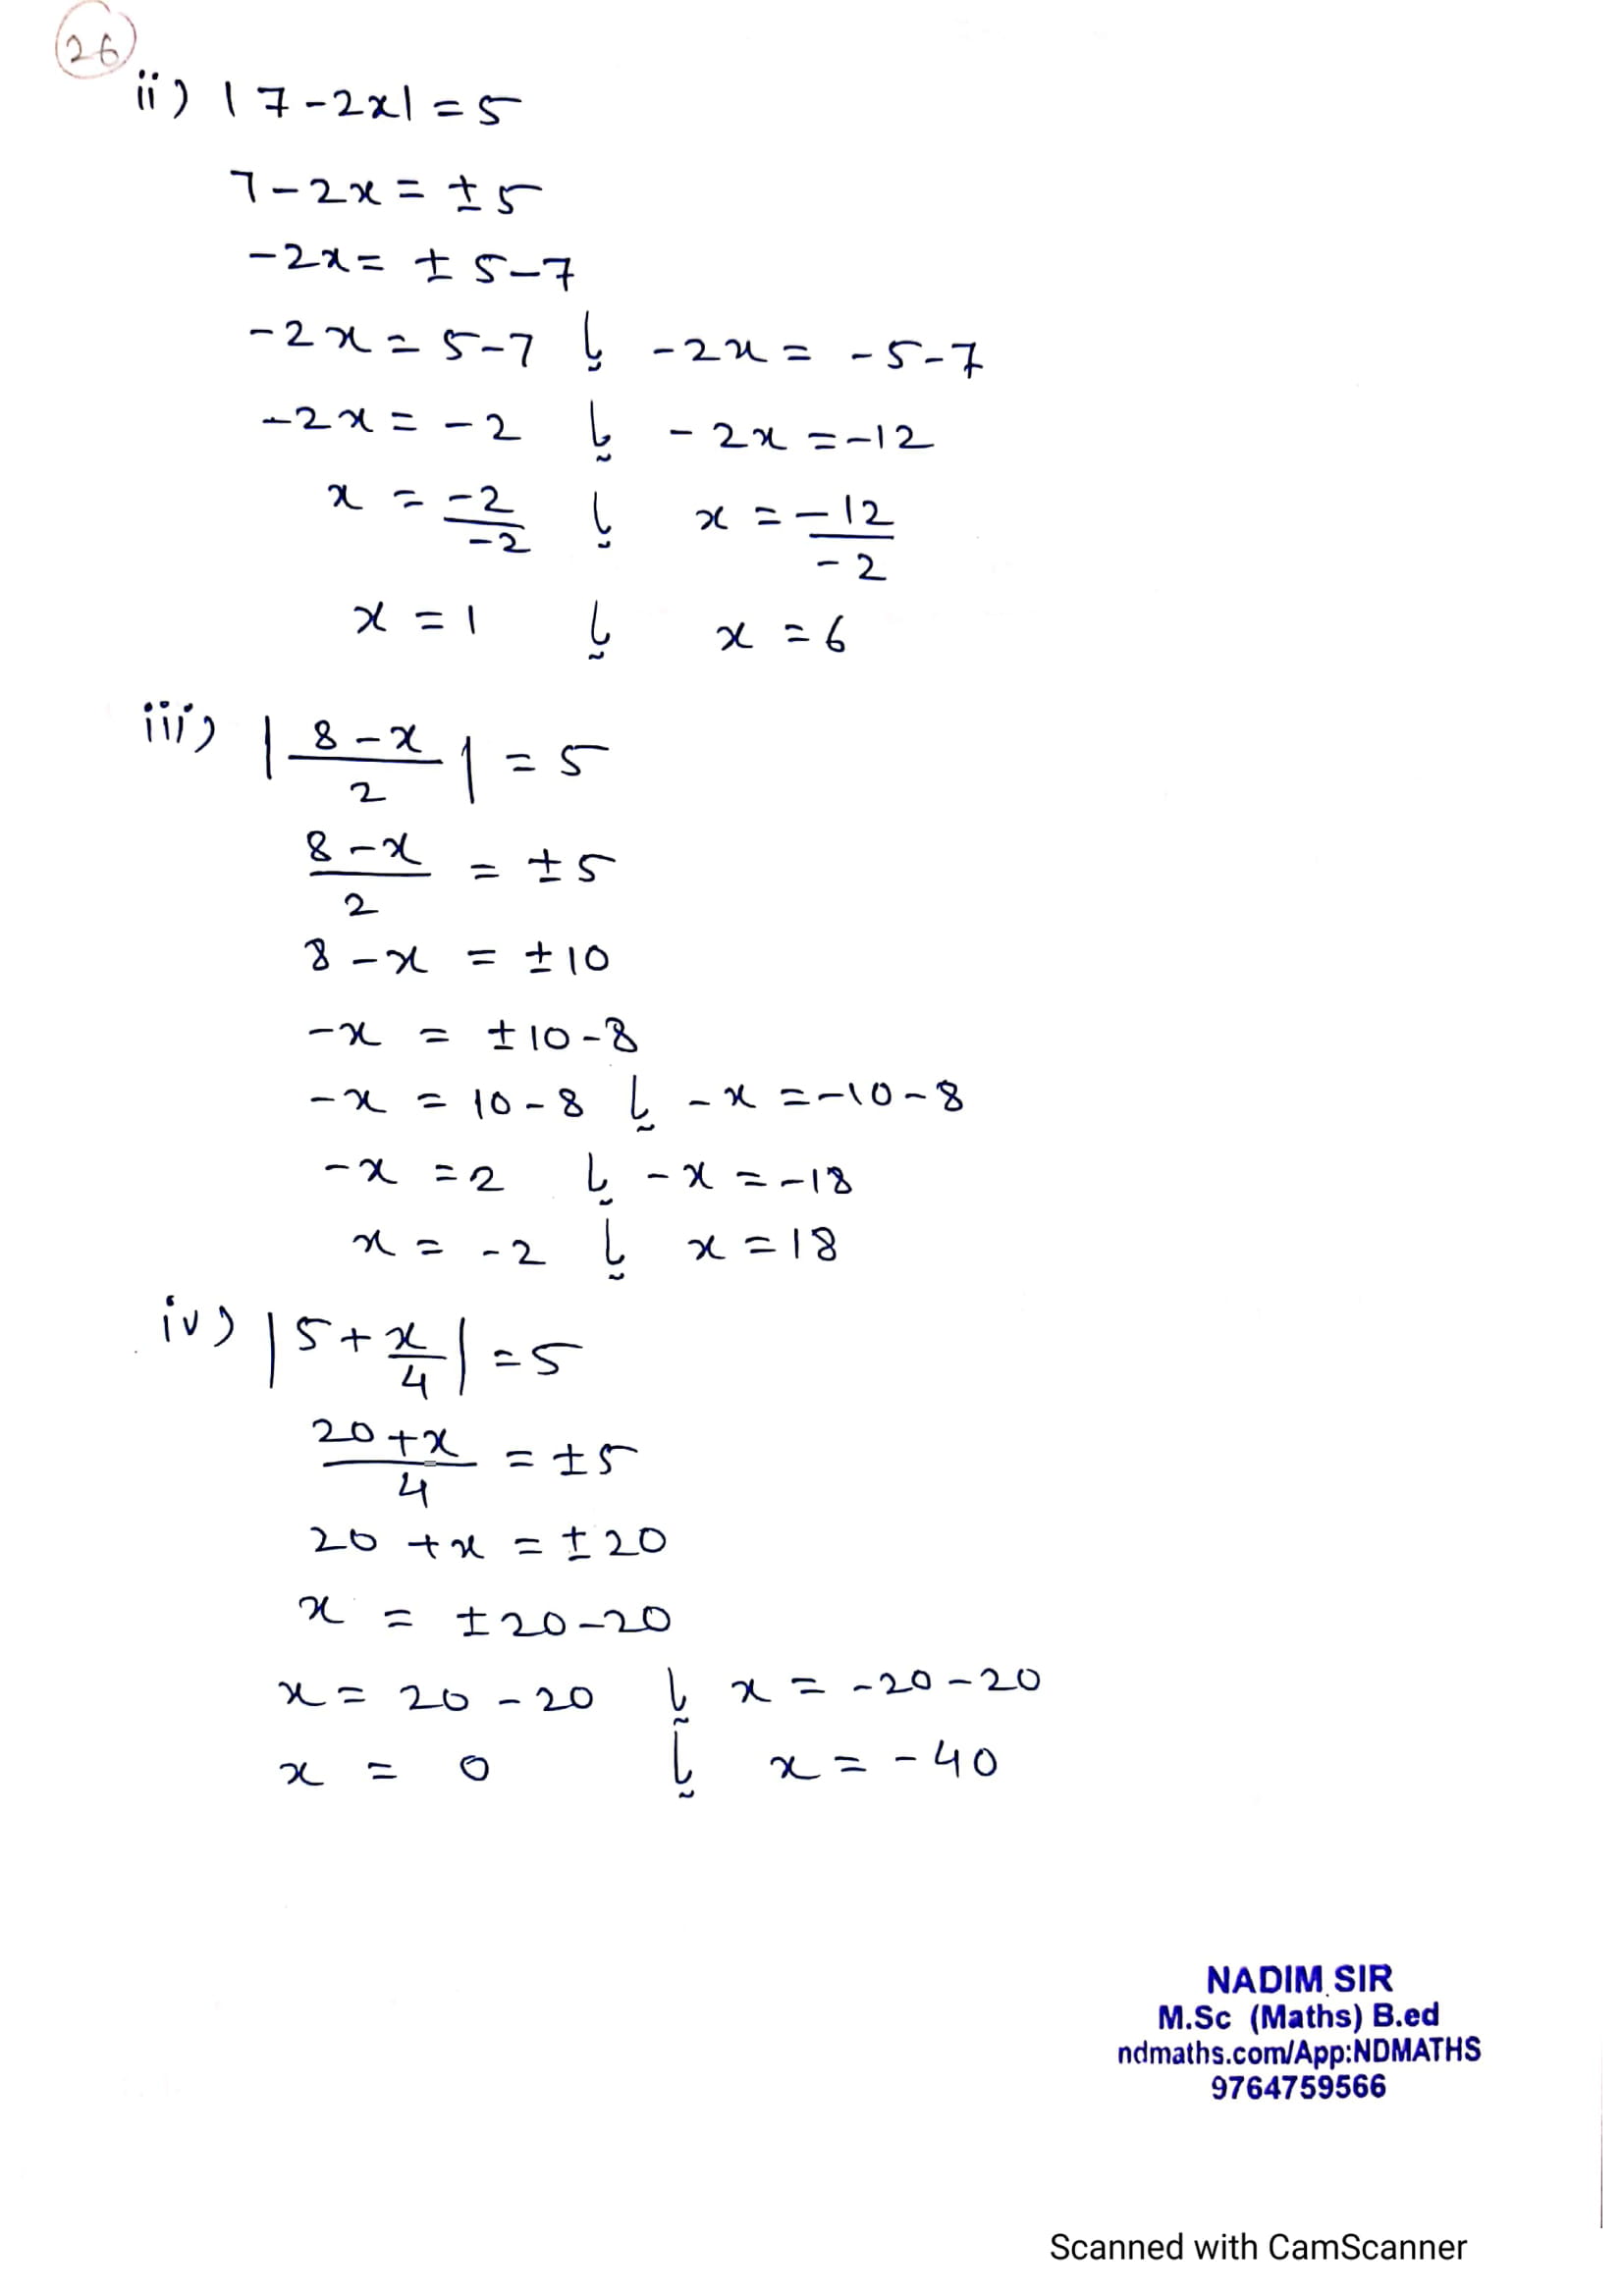 26
ii) |7-2x| = 5
7-2x = ±5
-2x = ±5-7
-2x = 5-7 या -2x = -5-7
-2x = -2 या -2x = -12
x = -2/-2 या x = -12/-2
x = 1 या x = 6
iii) |8-x/2| = 5
8-x/2 = ±5
8-x = ±10
-x = ±10-8
-x = 10-8 या -x = -10-8
-x = 2 या -x = -18
x = -2 या x = 18
iv) |5+x/4| = 5
20+x/4 = ±5
20+x = ±20
x = ±20-20
x = 20-20 या x = -20-20
x = 0 या x = -40
NADIM SIR
M.Sc (Maths) B.ed
ndmaths.com/App:NDMATHS
9764759566
Scanned with CamScanner